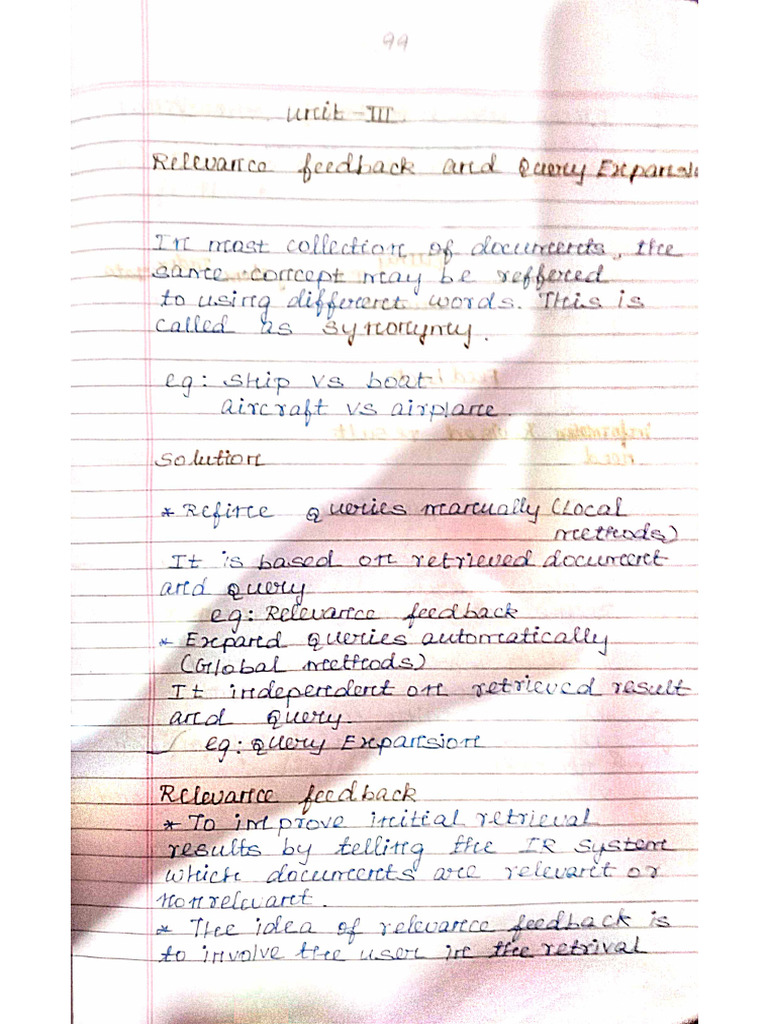 99
Unit - III
Relevance feedback and Query Expansio
In most collection of documents, the
same concept may be reffered
to using different words. This is
called as synonymy.
eg: ship vs boat
aircraft vs airplane.
Solution
* Refine queries manually (Local
methods)
It is based on retrieved document
and query
eg: Relevance feedback
* Expand queries automatically
(Global methods)
It independent on retrieved result
and query.
eg: Query Expansion
Relevance feedback
* To improve initial retrieval
results by telling the IR system
which documents are relevant or
nonrelevant.
* The idea of relevance feedback is
to involve the user in the retrival